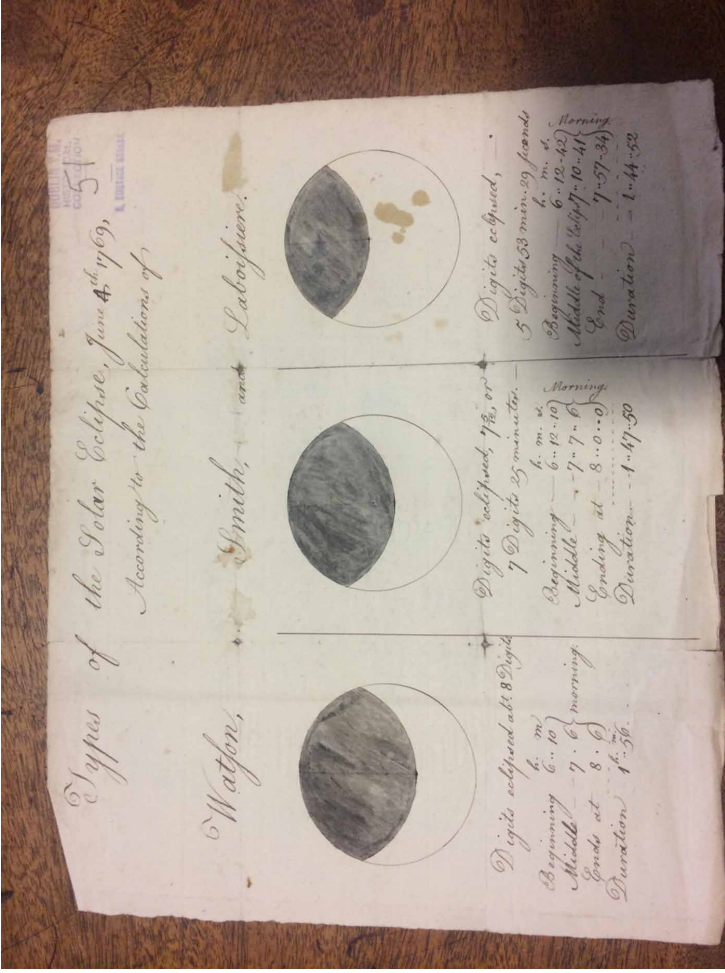 Types of the Solar Eclipse, June 4th 1769,
According to the Calculations of
Watson, Smith, and Laboissiere.
Digits eclipsed abt 8 Digits
h. m
Beginning 6 . 10
Middle 7 . 6
Ends at 8 . 6
morning.
h. m
Duration 1 . 56
Digits eclipsed, 7 5/12, or
7 Digits 25 minutes.
h. m. s.
Beginning 6 .. 12 .. 10
Middle 7 .. 7 .. 6
Ending at 8 .. 0 .. 0
Morning.
Duration 1 .. 47 .. 50
Digits eclipsed,
5 Digits 53 min. 29 seconds
h. m. s.
Beginning 6 .. 12 .. 42
Middle of the Eclips 7 .. 10 .. 41
End 7 .. 57 .. 34
Morning
Duration 1 .. 44 .. 52
COLLECTION
51
6, EUSTACE STREET.